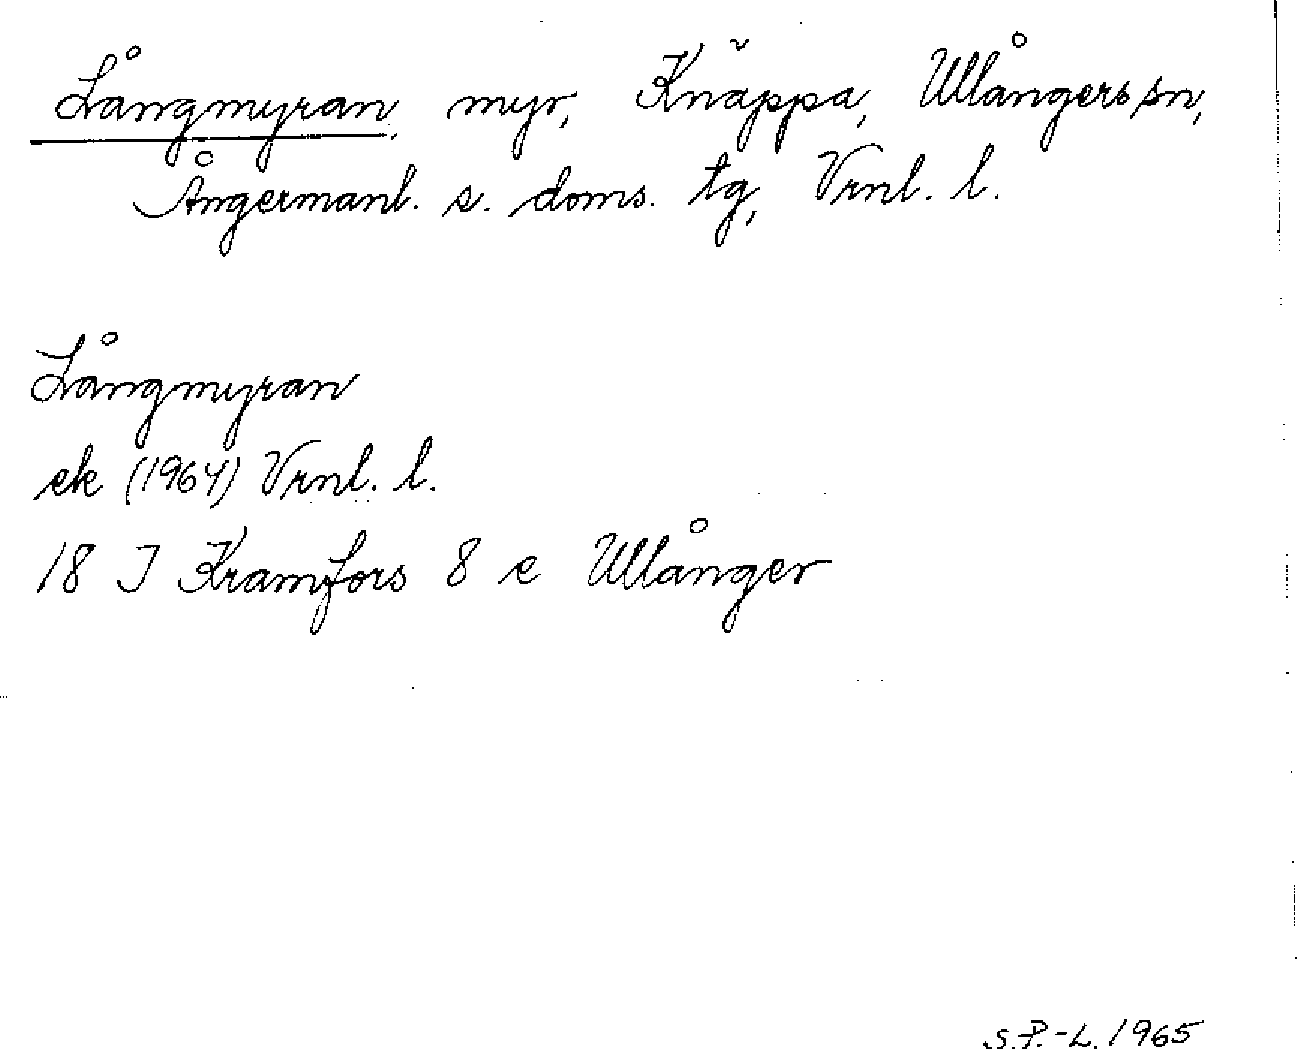 Långmyran, myr, Knäppa, Ullångers sn,
Ångermanl. s. doms. tg, Vrnl. l.
Långmyran
ek (1964) Vrnl. l.
18 I Kramfors 8 e Ullånger
S.P.-L. 1965